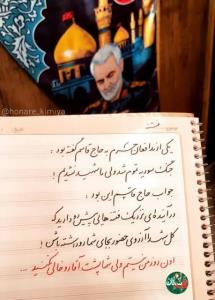 @honare_kimiya
یکی از مدافعان حرم به حاج قاسم گفته بود :
جنگ سوریه تموم شد ولی ما شهید نشدیم !
جواب حاج قاسم این بود :
در آینده‌ای نزدیک فتنه‌هایی پیش رو دارید که
کل شهدا آرزوی حضور بجای شما رو داشته باشن !
اون روز من نیستم ولی شما پشت آقا رو خالی نکنید ...